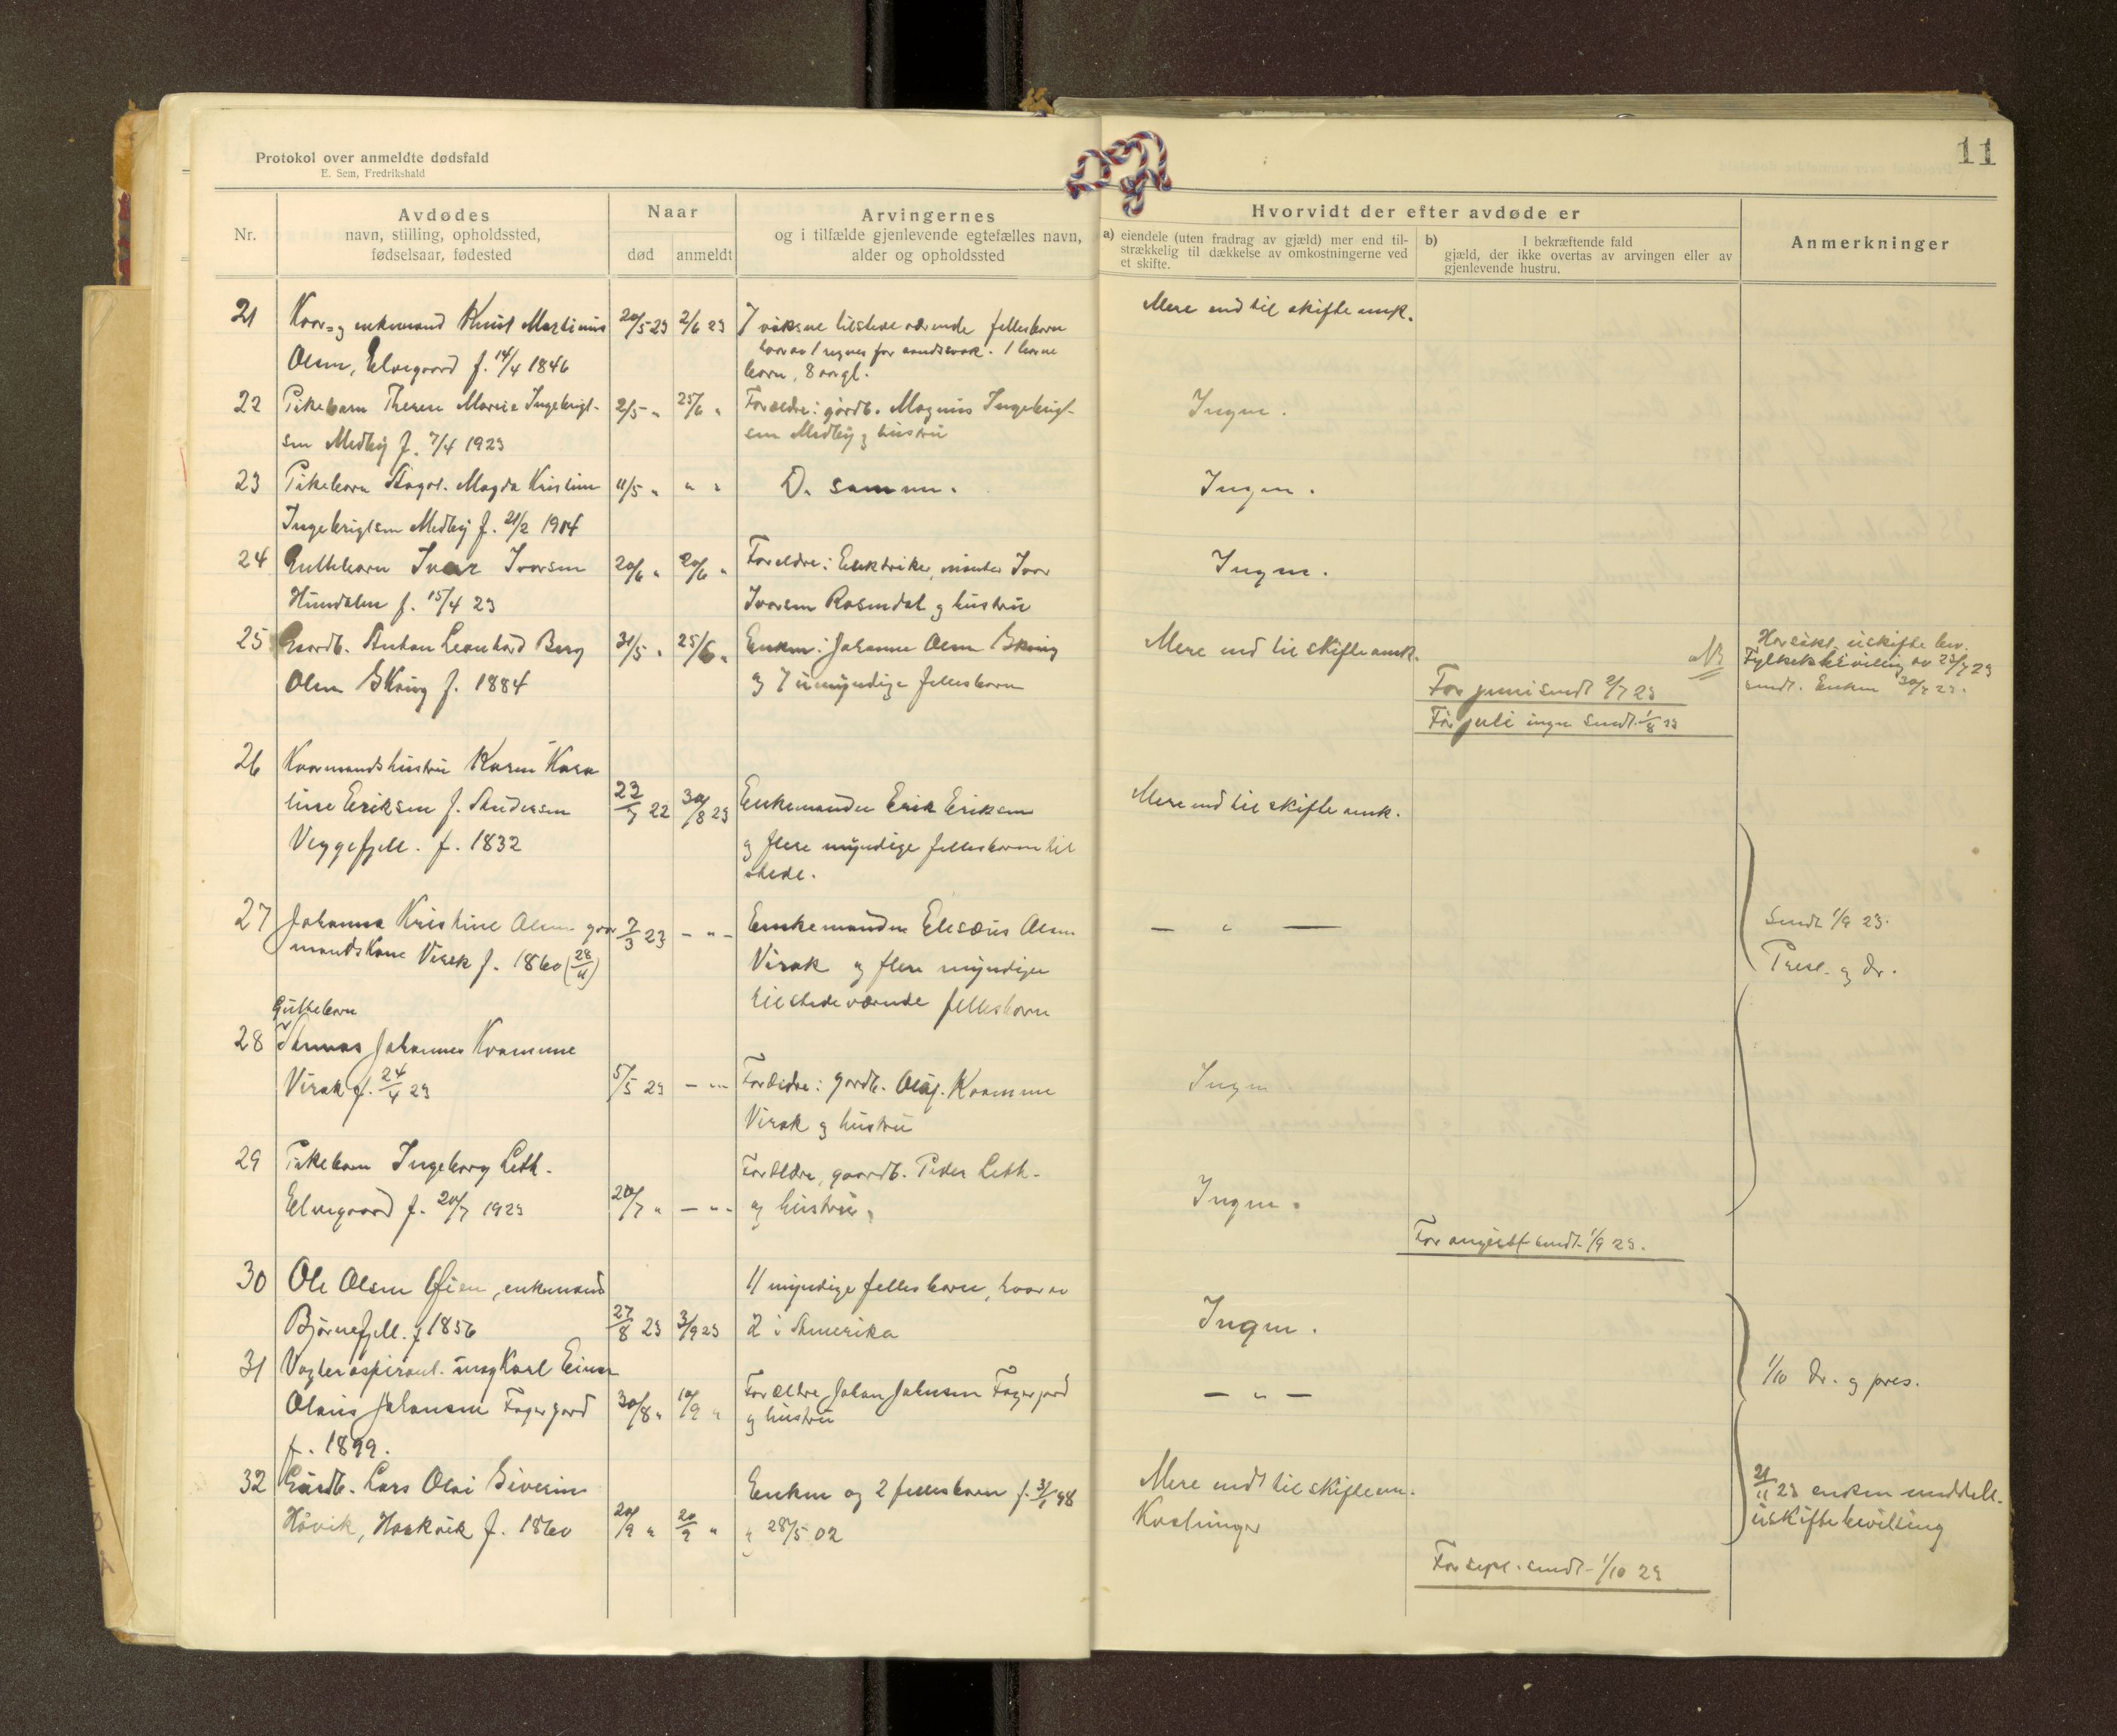 Protokol over anmeldte dødsfald
E. Sem, Fredrikshald
11
Nr.
Avdødes
navn, stilling, opholdssted,
fødselsaar, fødested
Naar
død
anmeldt
Arvingernes
og i tilfælde gjenlevende egtefælles navn,
alder og opholdssted
Hvorvidt der efter avdøde er
a) eiendele (uten fradrag av gjæld) mer end til-
strækkelig til dækkelse av omkostningerne ved
et skifte.
b) I bekræftende fald
gjæld, der ikke overtas av arvingen eller av
gjenlevende hustru.
Anmerkninger
21 Kaar- og enkemand Knut Martinus 20/5 23 2/6 23 7 voksne tilstedeværende fellesbarn Mere end til skifte omk.
Olsen, Elvegaard f. 14/4 1846 hvorav 1 regnes for aandssvak. 1
barn, 8 aar gl.
22 Pikebarn Therese Marie Ingebrigt- 2/5 " 25/6 " Forældre: gårdb. Magnus Ingebrigt- Ingen.
sen Medby f. 7/4 1923 sen Medby og hustru
23 Pikebarn Magda Kristine 11/5 " " " D. samme. Ingen.
Ingebrigtsen Medby f. 21/2 1914
24 Guttebarn Ivar Ivarsen 20/6 " 20/6 " Foreldre: Elektriker, montør Ivar Ingen.
Hundalen f. 15/4 23 Ivarsen Rosendal og hustru
25 Gaardb. Anton Leonhard Berg 31/5 " 25/6 " Enken: Johanna Olsen Skoing Mere end til skifte omk.
Olsen f. 1884 og 7 umyndige fellesbarn
NB Har søkt uskifte bev.
Fylkets bevilling av 23/7 23
sendt. Enken 30/7 23.
For juni sendt 2/7 23
For juli ingen sendt 1/8 23
26 Kaarmandshustru Karen Karo
line Eriksen f. Andersen 23/5 22 30/8 23 Enkemanden Erik Eriksen Mere end til skifte omk.
Veggefjell. f. 1832 og flere myndige fellesbarn til
stede.
27 Johanna Kristine Olsen gaar 7/3 23 — " — Enkemanden Elesæus Olsen — " —
mandskone Virak f. 1860 (28/11) Virak og flere myndige
tilstedeværende fellesbarn
Sendt 1/9 23.
Prest. og dr.
Guttebarn
28 Johannes Kvamme
Virak f. 24/4 23 5/5 23 — " — Forældre: gardb. Olaf Kvamme Ingen
Virak og hustru
29 Pikebarn Ingeborg Leth- Forældre, gaardb. Peder Leth-
Elvegaard f. 20/7 1923 20/7 " — " — og hustru. Ingen.
For august sendt 1/9 23.
30 Ole Olsen Øien, enkemand 11 myndige fellesbarn, hvorav
Bjørnefjell. f 1856 27/8 23 3/9 23 2 i Amerika Ingen.
31 Vogteraspirant. ung Karl Einar
Olaus Johansen Fagerjord 30/8 " 10/9 " Forældre Johan Johansen Fagerjord — " —
f. 1899. og hustru
1/10 Dr. og pres.
32 Gardb. Lars Olai Severin Enken og 2 fellesbarn f. 3/1 98 Mere end til skifte om.
Håvik, Haakvik f. 1860 20/9 " 20/9 " " 28/5 02 Kostninger
21/11 23 enken meddelt
uskiftebevilling
For sept. sendt 1/10 23